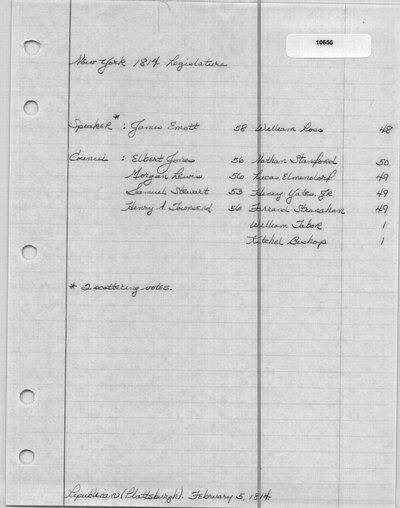 10656
New York 1814 Legislature
Speaker* : James Emott 58 William Ross 48
Council : Elbert Jones 56 Nathan Stanford 50
Morgan Lewis 56 Lucas Elmendorf 49
Samuel Stewart 53 Henry Yates, Jr. 49
Henry A. Townsend 56 Farrand Stranahan 49
William Tabor 1
Kitchel Bishop 1
* 2 scattering votes.
Republican (Plattsburgh). February 5, 1814